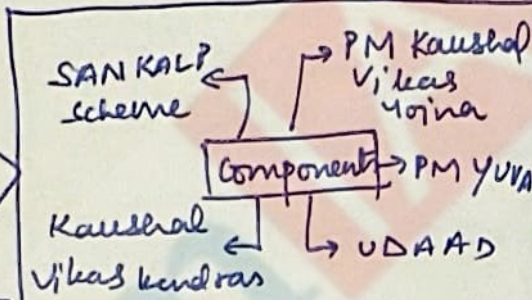 SANKALP
scheme
PM Kaushal
Vikas
Yojna
Component
PM YUVA
Kaushal
Vikas kendras
UDAAD